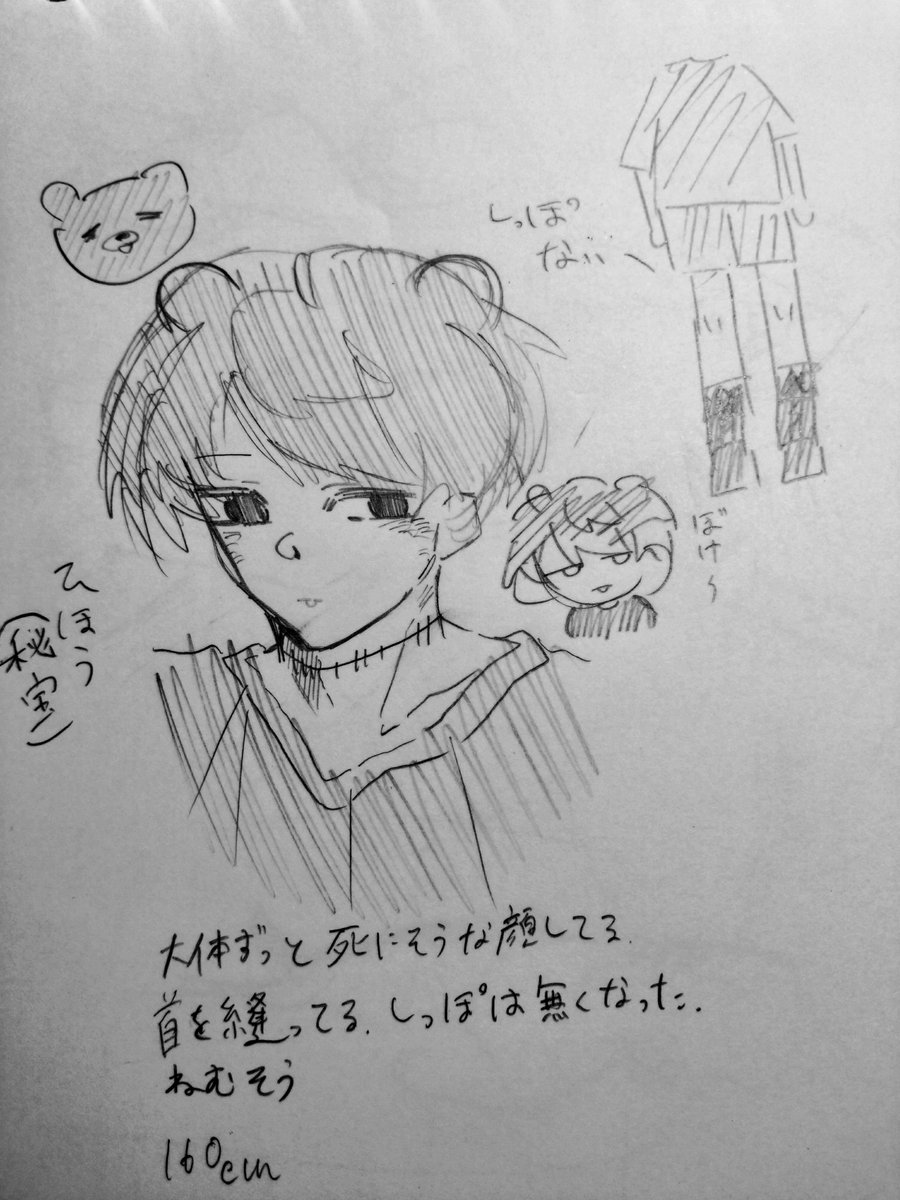 しっぽ
ない
ぼけ〜
ひほう
(秘宝)
大体ずっと死にそうな顔してる.
首を縫ってる.しっぽは無くなった.
ねむそう
160cm